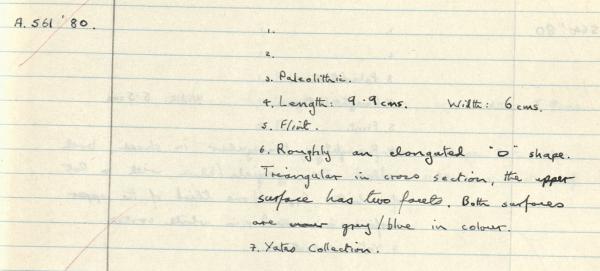 A. 561 '80.
1.
2.
3. Paleolithic.
4. Length: 9.9 cms. Width: 6 cms.
5. Flint.
6. Roughly an elongated "D" shape.
Triangular in cross section, the upper
surface has two facets. Both surfaces
are grey/blue in colour.
7. Yates Collection.